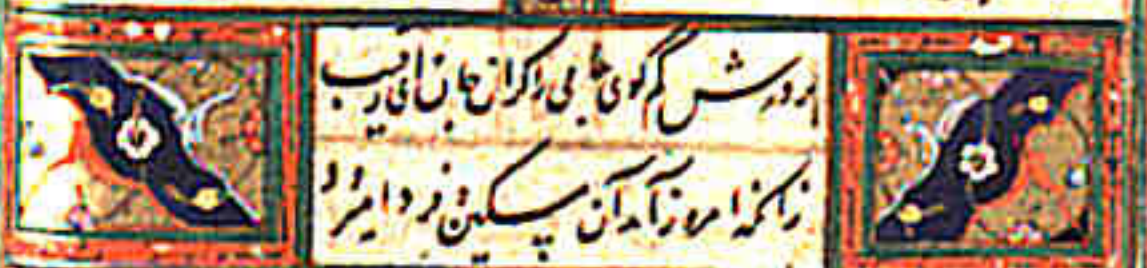 بر درش کم گوی جامی را کران جان ای رقیب
زانکه امروز آمد آن مسکین و فردا میرود